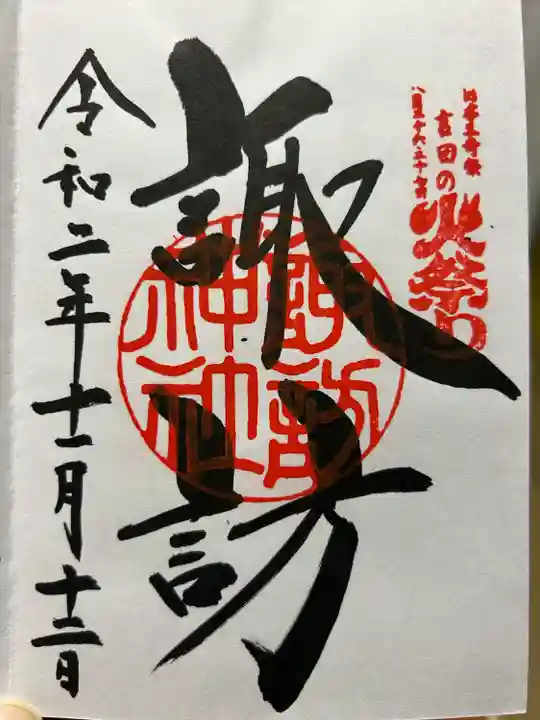 日本三奇祭
吉田の火祭り
八月二十六二十七日
諏訪
諏訪
神社
令和二年十一月十二日